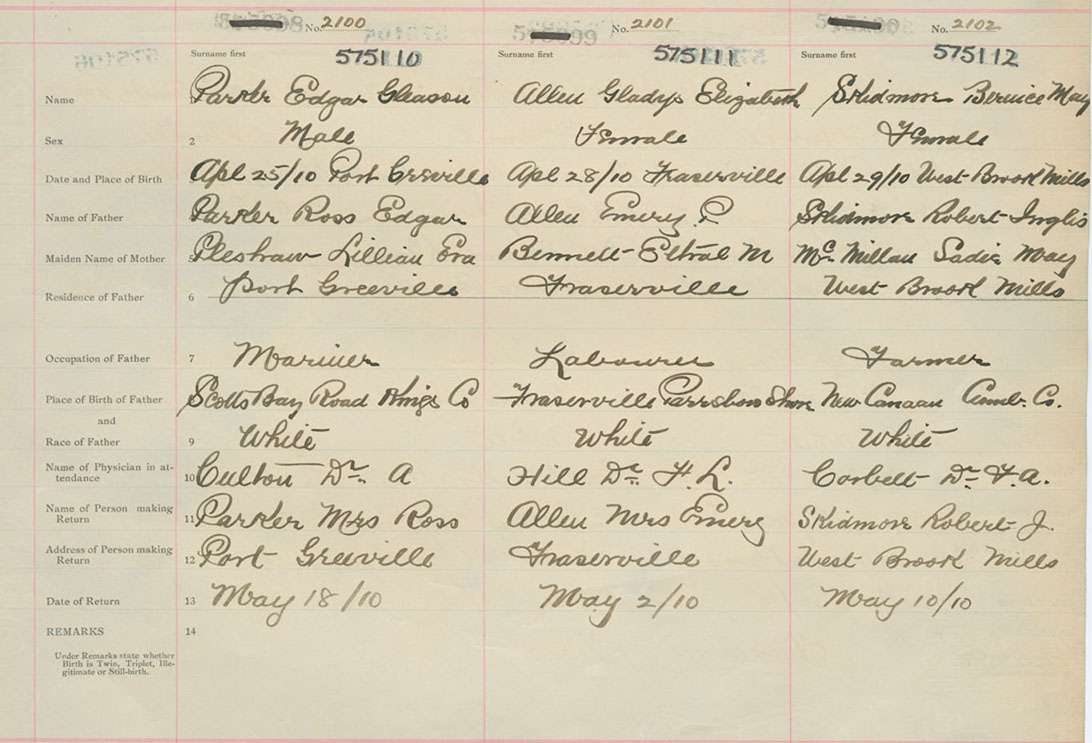 No. 2100 No. 2101 No. 2102
Surname first 575110 Surname first 575111 Surname first 575112
Name Parker Edgar Gleason Allen Gladys Elizabeth Skidmore Bernice May
Sex 2 Male Female Female
Date and Place of Birth Apl 25/10 Port Greville Apl 28/10 Fraserville Apl 29/10 West Brook Mills
Name of Father Parker Ross Edgar Allen Emery P Skidmore Robert Inglis
Maiden Name of Mother Lillian Eva Bennett Ethal M McMillan Sadie May
Residence of Father 6 Port Greeville Fraserville West Brook Mills
Occupation of Father 7 Mariner Labourer Farmer
Place of Birth of Father Scotts Bay Road Kings Co Fraserville Parrsboro Shore New Canaan Cumb. Co.
and
Race of Father 9 White White White
Name of Physician in at-
tendance 10 Culton Dr. A Hill Dr. F. L. Corbett Dr. F.A.
Name of Person making
Return 11 Parker Mrs Ross Allen Mrs Emery Skidmore Robert J.
Address of Person making
Return 12 Port Greeville Fraserville West Brook Mills
Date of Return 13 May 18/10 May 2/10 May 10/10
REMARKS 14
Under Remarks state whether
Birth is Twin, Triplet, Ille-
gitimate or Still-birth.